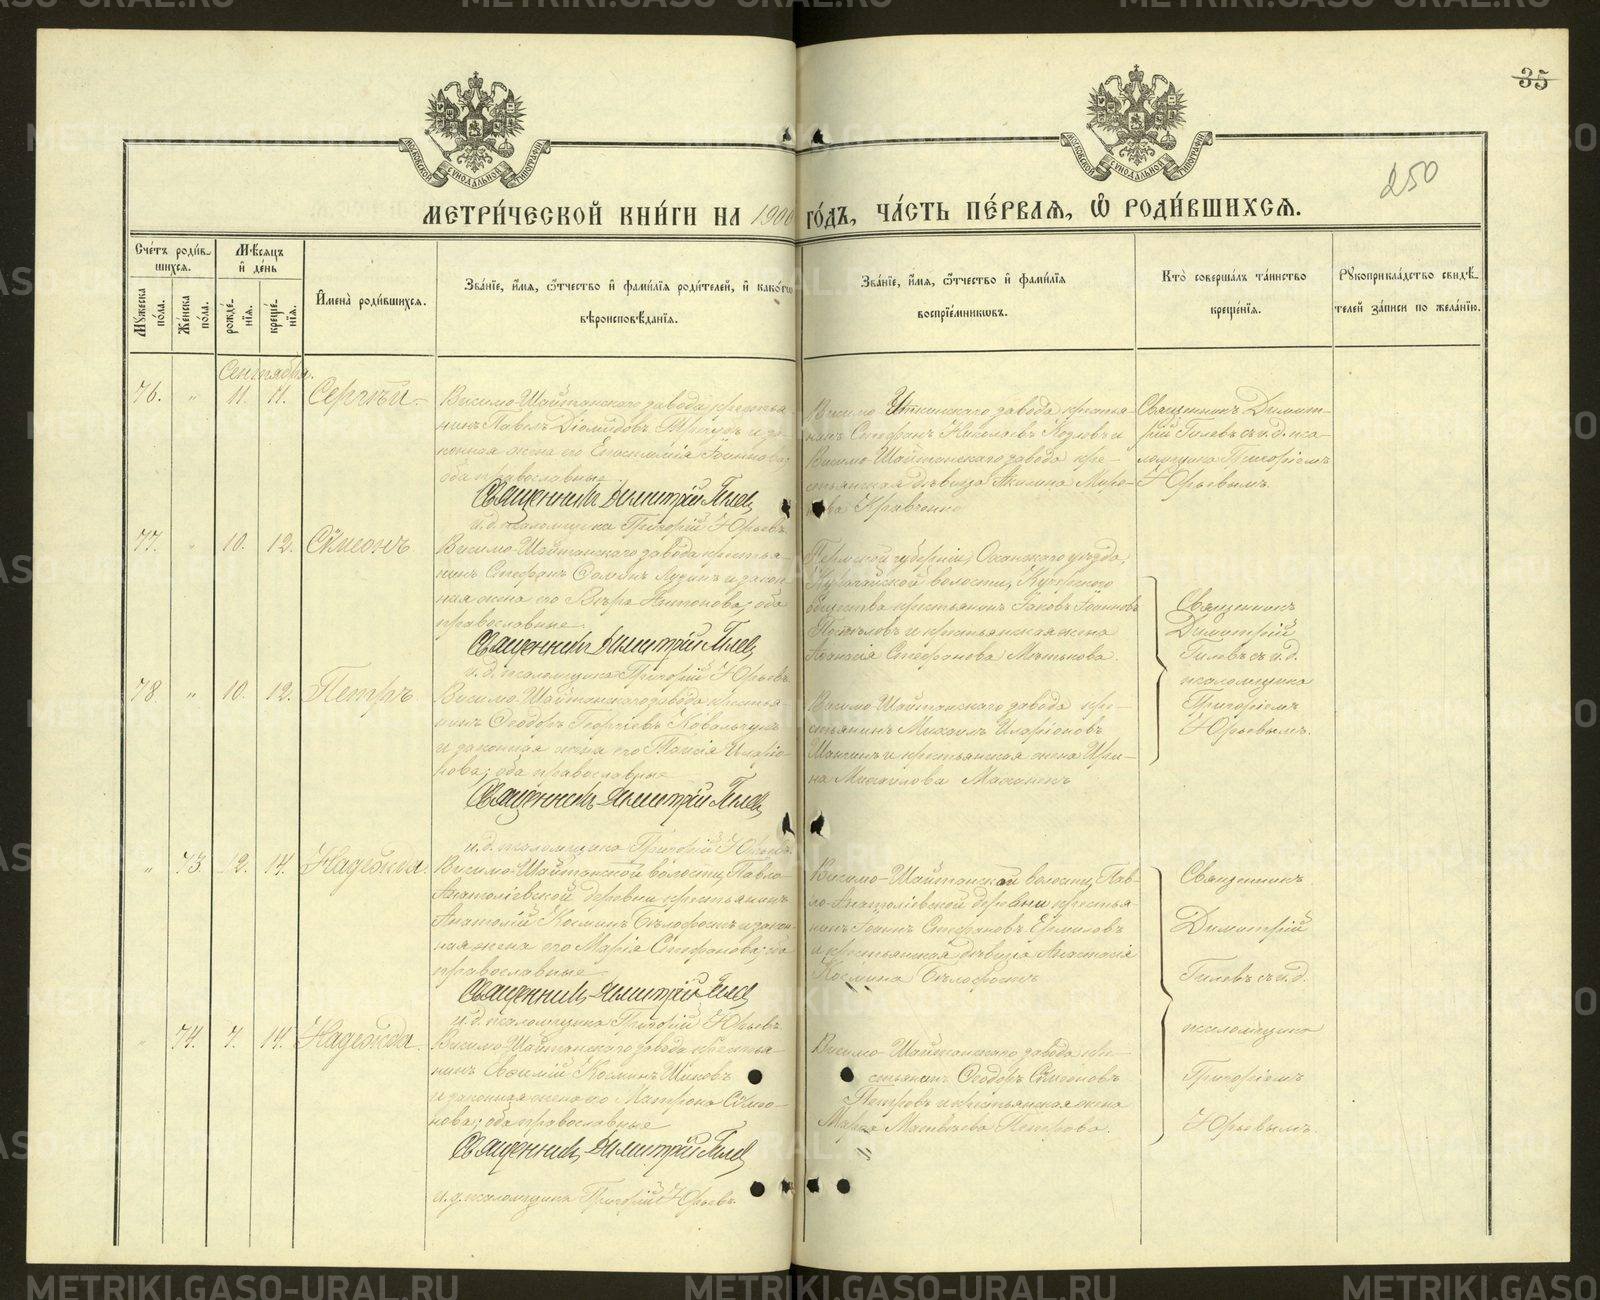 35
250
МОСКОВСКОЙ СѴНОДАЛЬНОЙ ТИПОГРАФІИ
МОСКОВСКОЙ СѴНОДАЛЬНОЙ ТИПОГРАФІИ
МЕТРИ́ЧЕСКОЙ КНИ́ГИ НА 1900 ГО́ДЪ, ЧА́СТЬ ПЕ́РВАЯ, Ѽ РОДИ́ВШИХСЯ.
Сче́тъ роди́в-
шихся.
Мꙋжеска по́ла.
Же́нска по́ла.
Мѣ́сяцъ
и҆ де́нь
рожде́-
нїя.
креще́-
нїя.
И҆мена̀ роди́вшихся.
Зва́нїе, и҆́мя, ѻ҆́тчество и҆ фами́лїя роди́телей, и҆ како́гѡ
вѣроисповѣ́данїя.
Зва́нїе, и҆́мя, ѻ҆́тчество и҆ фами́лїя
воспрїе́мникѡвъ.
Кто̀ соверша́лъ та́инство
креще́нїя.
Рꙋкоприкла́дство свидѣ́-
телей за́писи по жела́нїю.
Сентябрь.
76. " 11. 11. Сергѣй
Висимо-Шайтанскаго завода крестья-
нинъ Павелъ Діомидовъ и за-
конная жена его Іоаннова;
оба православные
Священникъ Димитрій Гилев
и. д. псаломщика Григорій Юрьевъ
Висимо-Уткинскаго завода крестья-
нинъ Стефанъ Николаевъ Козловъ и
Висимо-Шайтанскаго завода кре-
стьянская дѣвица Акилина Миро-
нова Кравченко
Священникъ Димит-
рій Гилевъ съ и. д. пса-
ломщика Григоріемъ
Юрьевымъ.
77. " 10. 12. Сѵмеонъ
Висимо-Шайтанскаго завода крестья-
нинъ Стефанъ и закон-
ная жена его Вѣра Антонова; оба
православные.
Священникъ Димитрій Гилев
и. д. псаломщика Григорій Юрьевъ
Пермской губерніи, Оханскаго уѣзда,
волости,
общества крестьянинъ Іаковъ Іоанновъ
и крестьянская жена
Стефанова
78 " 10. 12. Петръ
Висимо-Шайтанскаго завода крестья-
нинъ Ѳеодоръ Георгіевъ Ковальчукъ
и законная жена его Таисія Иларіо-
нова; оба православные
Священникъ Димитрій Гилев
и. д. псаломщика Григорій Юрьевъ
Висимо-Шайтанскаго завода кре-
стьянинъ Михаилъ Иларіоновъ
и крестьянская жена Ири-
на Михаилова
Священникъ
Димитрій
Гилевъ съ и. д.
псаломщика
Григоріемъ
Юрьевымъ.
" 73. 12. 14. Надежда.
Висимо-Шайтанской волости, Павло-
Анатоліевской деревни крестьянинъ
Анатолій Косминъ и закон-
ная жена его Марія Стефанова; оба
православные
Священникъ Димитрій Гилев
и. д. псаломщика Григорій Юрьевъ
Висимо-Шайтанской волости, Пав-
ло-Анатоліевской деревни крестья-
нинъ Іоаннъ Стефановъ Ермиловъ
и крестьянская дѣвица Анастасія
Космина
74. 7. 14. Надежда.
Висимо-Шайтанскаго завода крестья-
нинъ Евѳимій Косминъ
и законная жена его Матрона Сѵмео-
нова; оба православные
Священникъ Димитрій Гилев
и. д. псаломщика Григорій Юрьевъ.
Висимо-Шайтанскаго завода кре-
стьянинъ Ѳеодоръ Сѵмеоновъ
Петровъ и крестьянская жена
Марѳа Матвѣева Петрова.
Священникъ
Димитрій
Гилевъ съ и. д.
псаломщика
Григоріемъ
Юрьевымъ.
METRIKI.GASO-URAL.RU